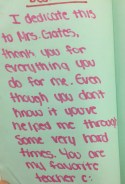 I dedicate this
to Mrs. Gates,
thank you for
everything you
do for me. Even
though you don't
know it you've
helped me through
some very hard
times. You are
my favorite
teacher c: